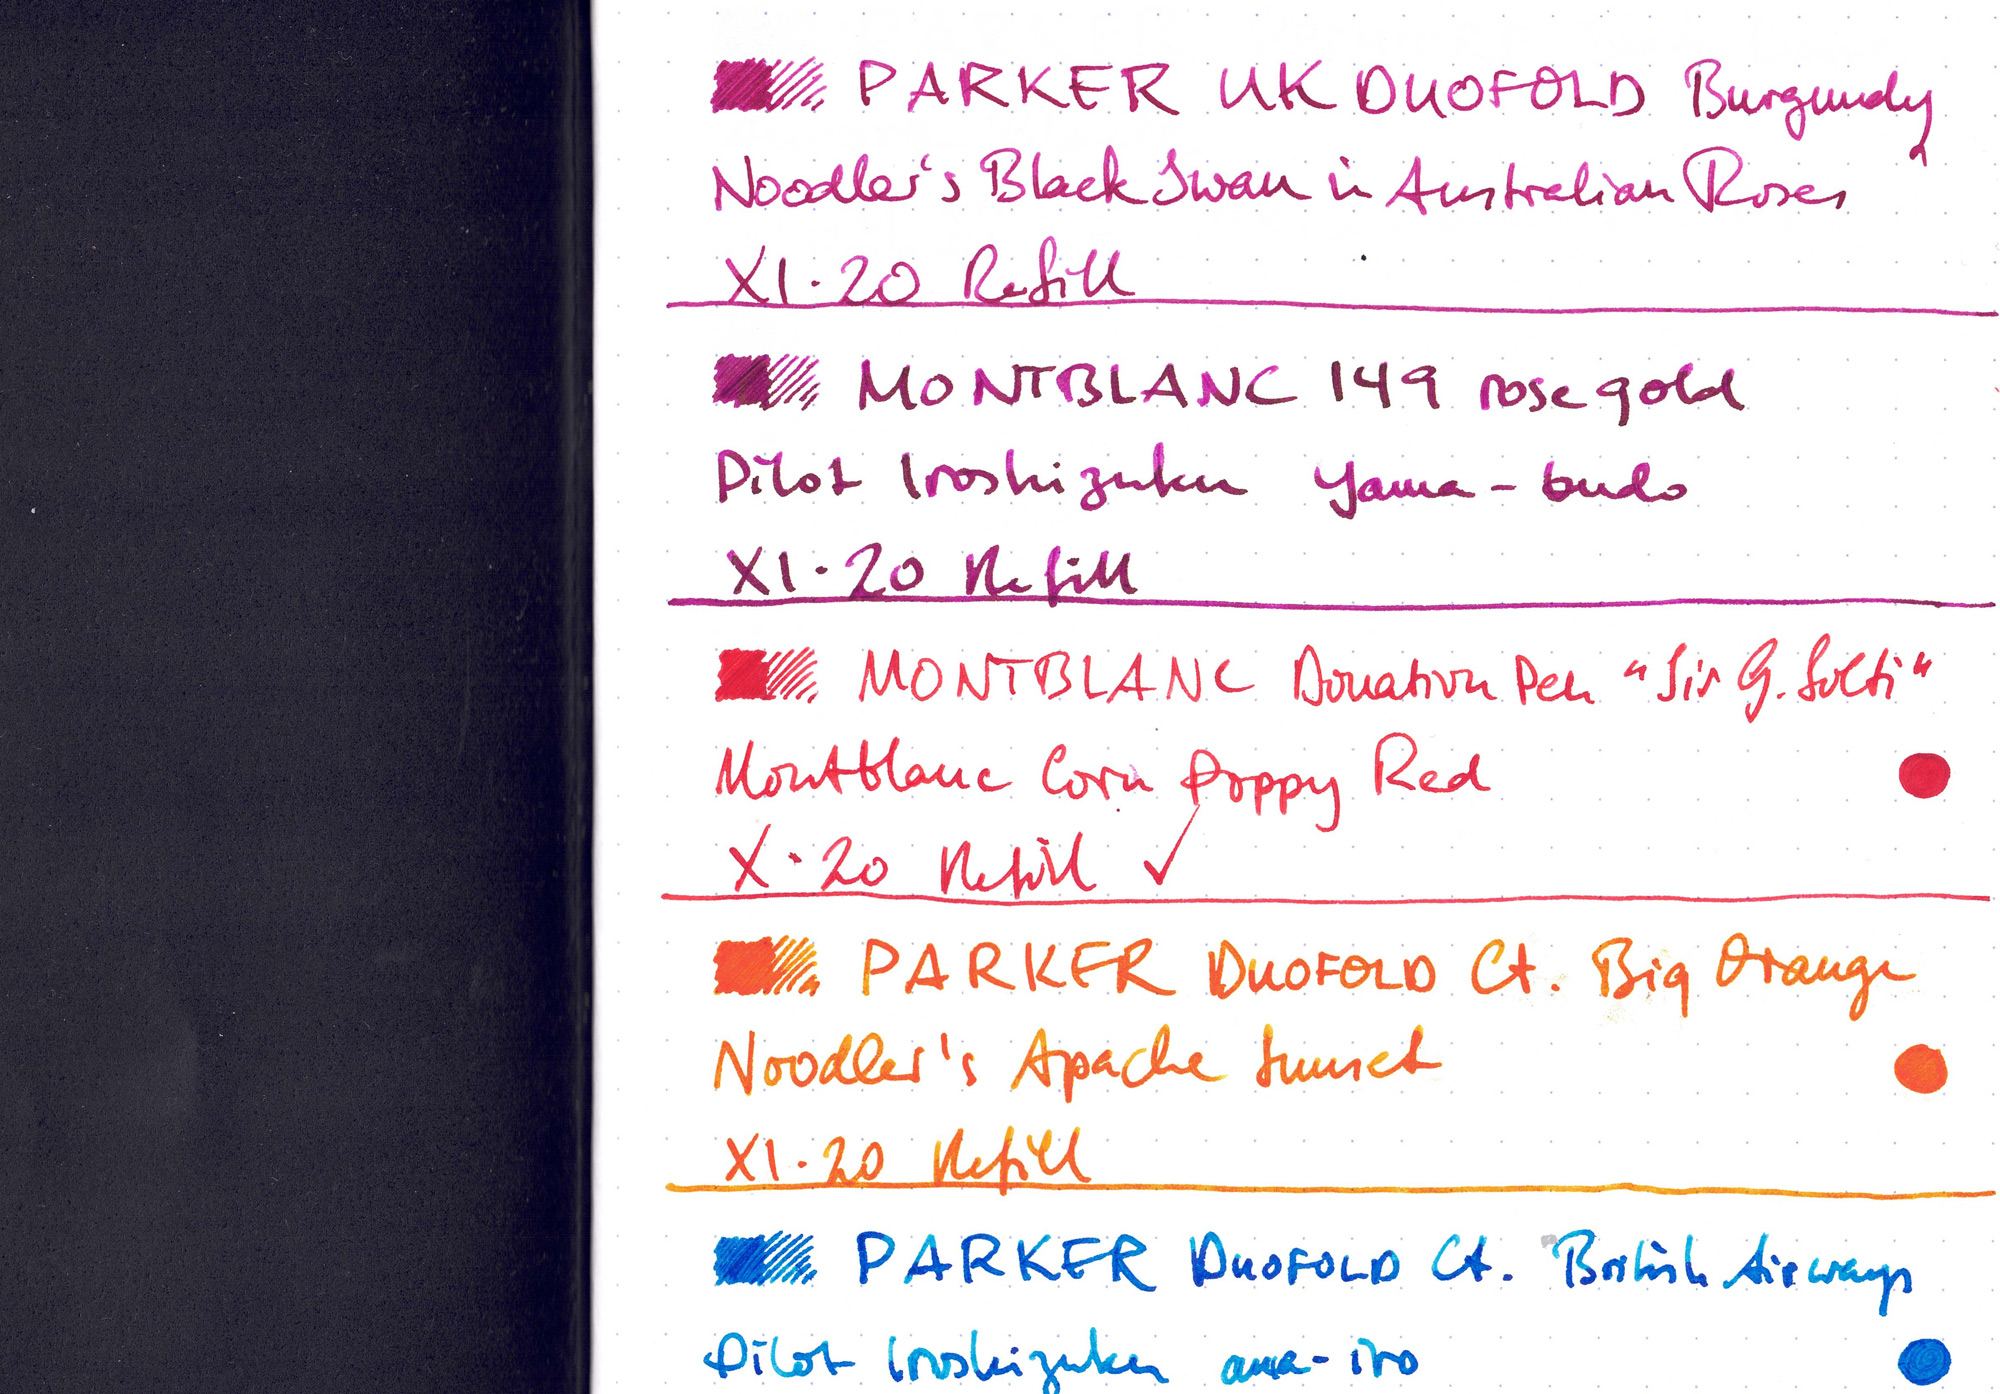 PARKER UK DUOFOLD Burgundy
Noodler's Black Swan in Australian Roses
XI·20 Refill
MONTBLANC 149 rosegold
Pilot Iroshizuku yama-budo
XI·20 Refill
MONTBLANC Donation Pen "Sir G. Solti"
Montblanc Corn Poppy Red
X·20 Refill ✓
PARKER DUOFOLD Ct. Big Orange
Noodler's Apache Sunset
XI·20 Refill
PARKER DUOFOLD Ct. British Airways
Pilot Iroshizuku ama-iro